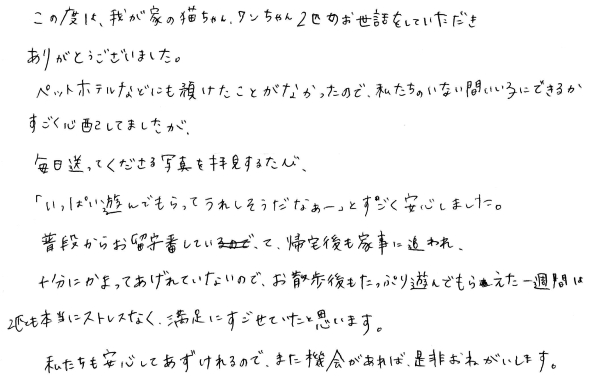 この度は、我が家の猫ちゃん、ワンちゃん2匹のお世話をしていただき
ありがとうございました。
ペットホテルなどにも預けたことがなかったので、私たちのいない間いい子にできるか
すごく心配してましたが、
毎日送ってくださる写真を拝見するたび、
「いっぱい遊んでもらってうれしそうだなぁー」とすごく安心しました。
普段からお留守番していて、帰宅後も家事に追われ、
十分にかまってあげれていないので、お散歩後もたっぷり遊んでもらえた一週間は
2匹とも本当にストレスなく、満足にすごせていたと思います。
私たちも安心してあずけれるので、また機会があれば、是非おねがいします。